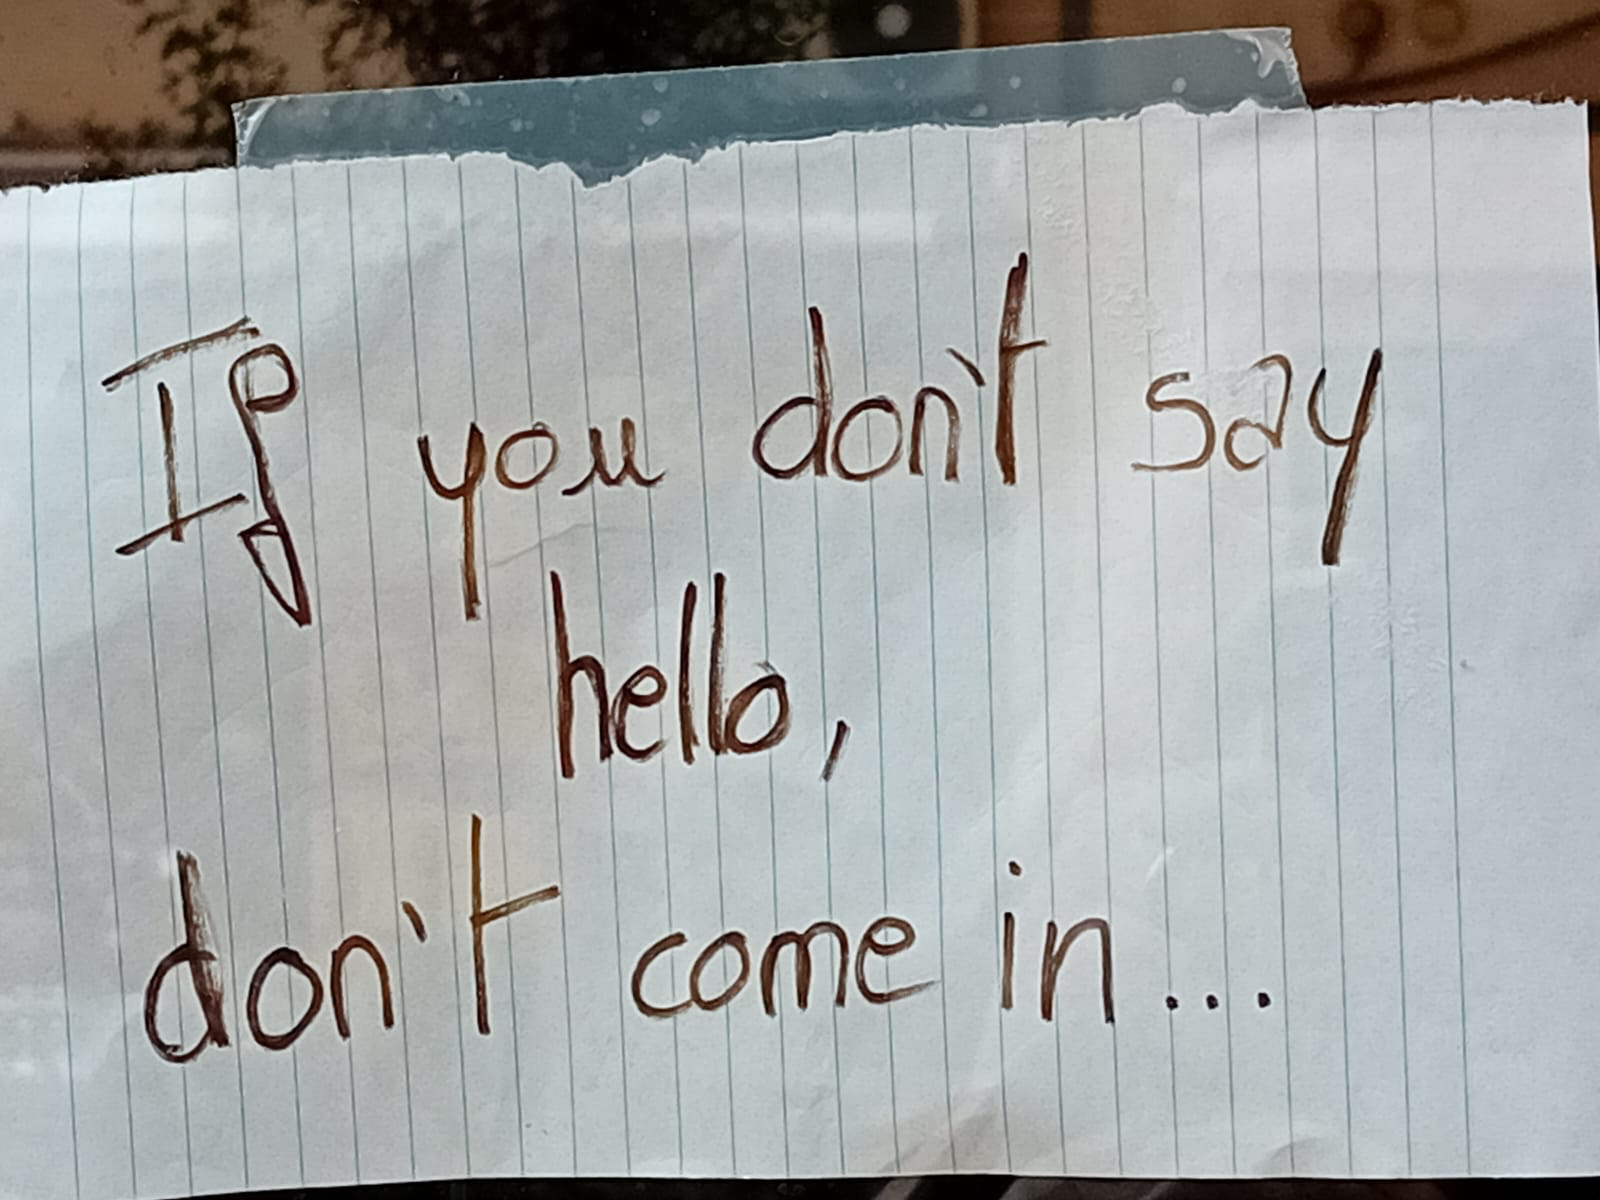 If you don't say
hello,
don't come in...